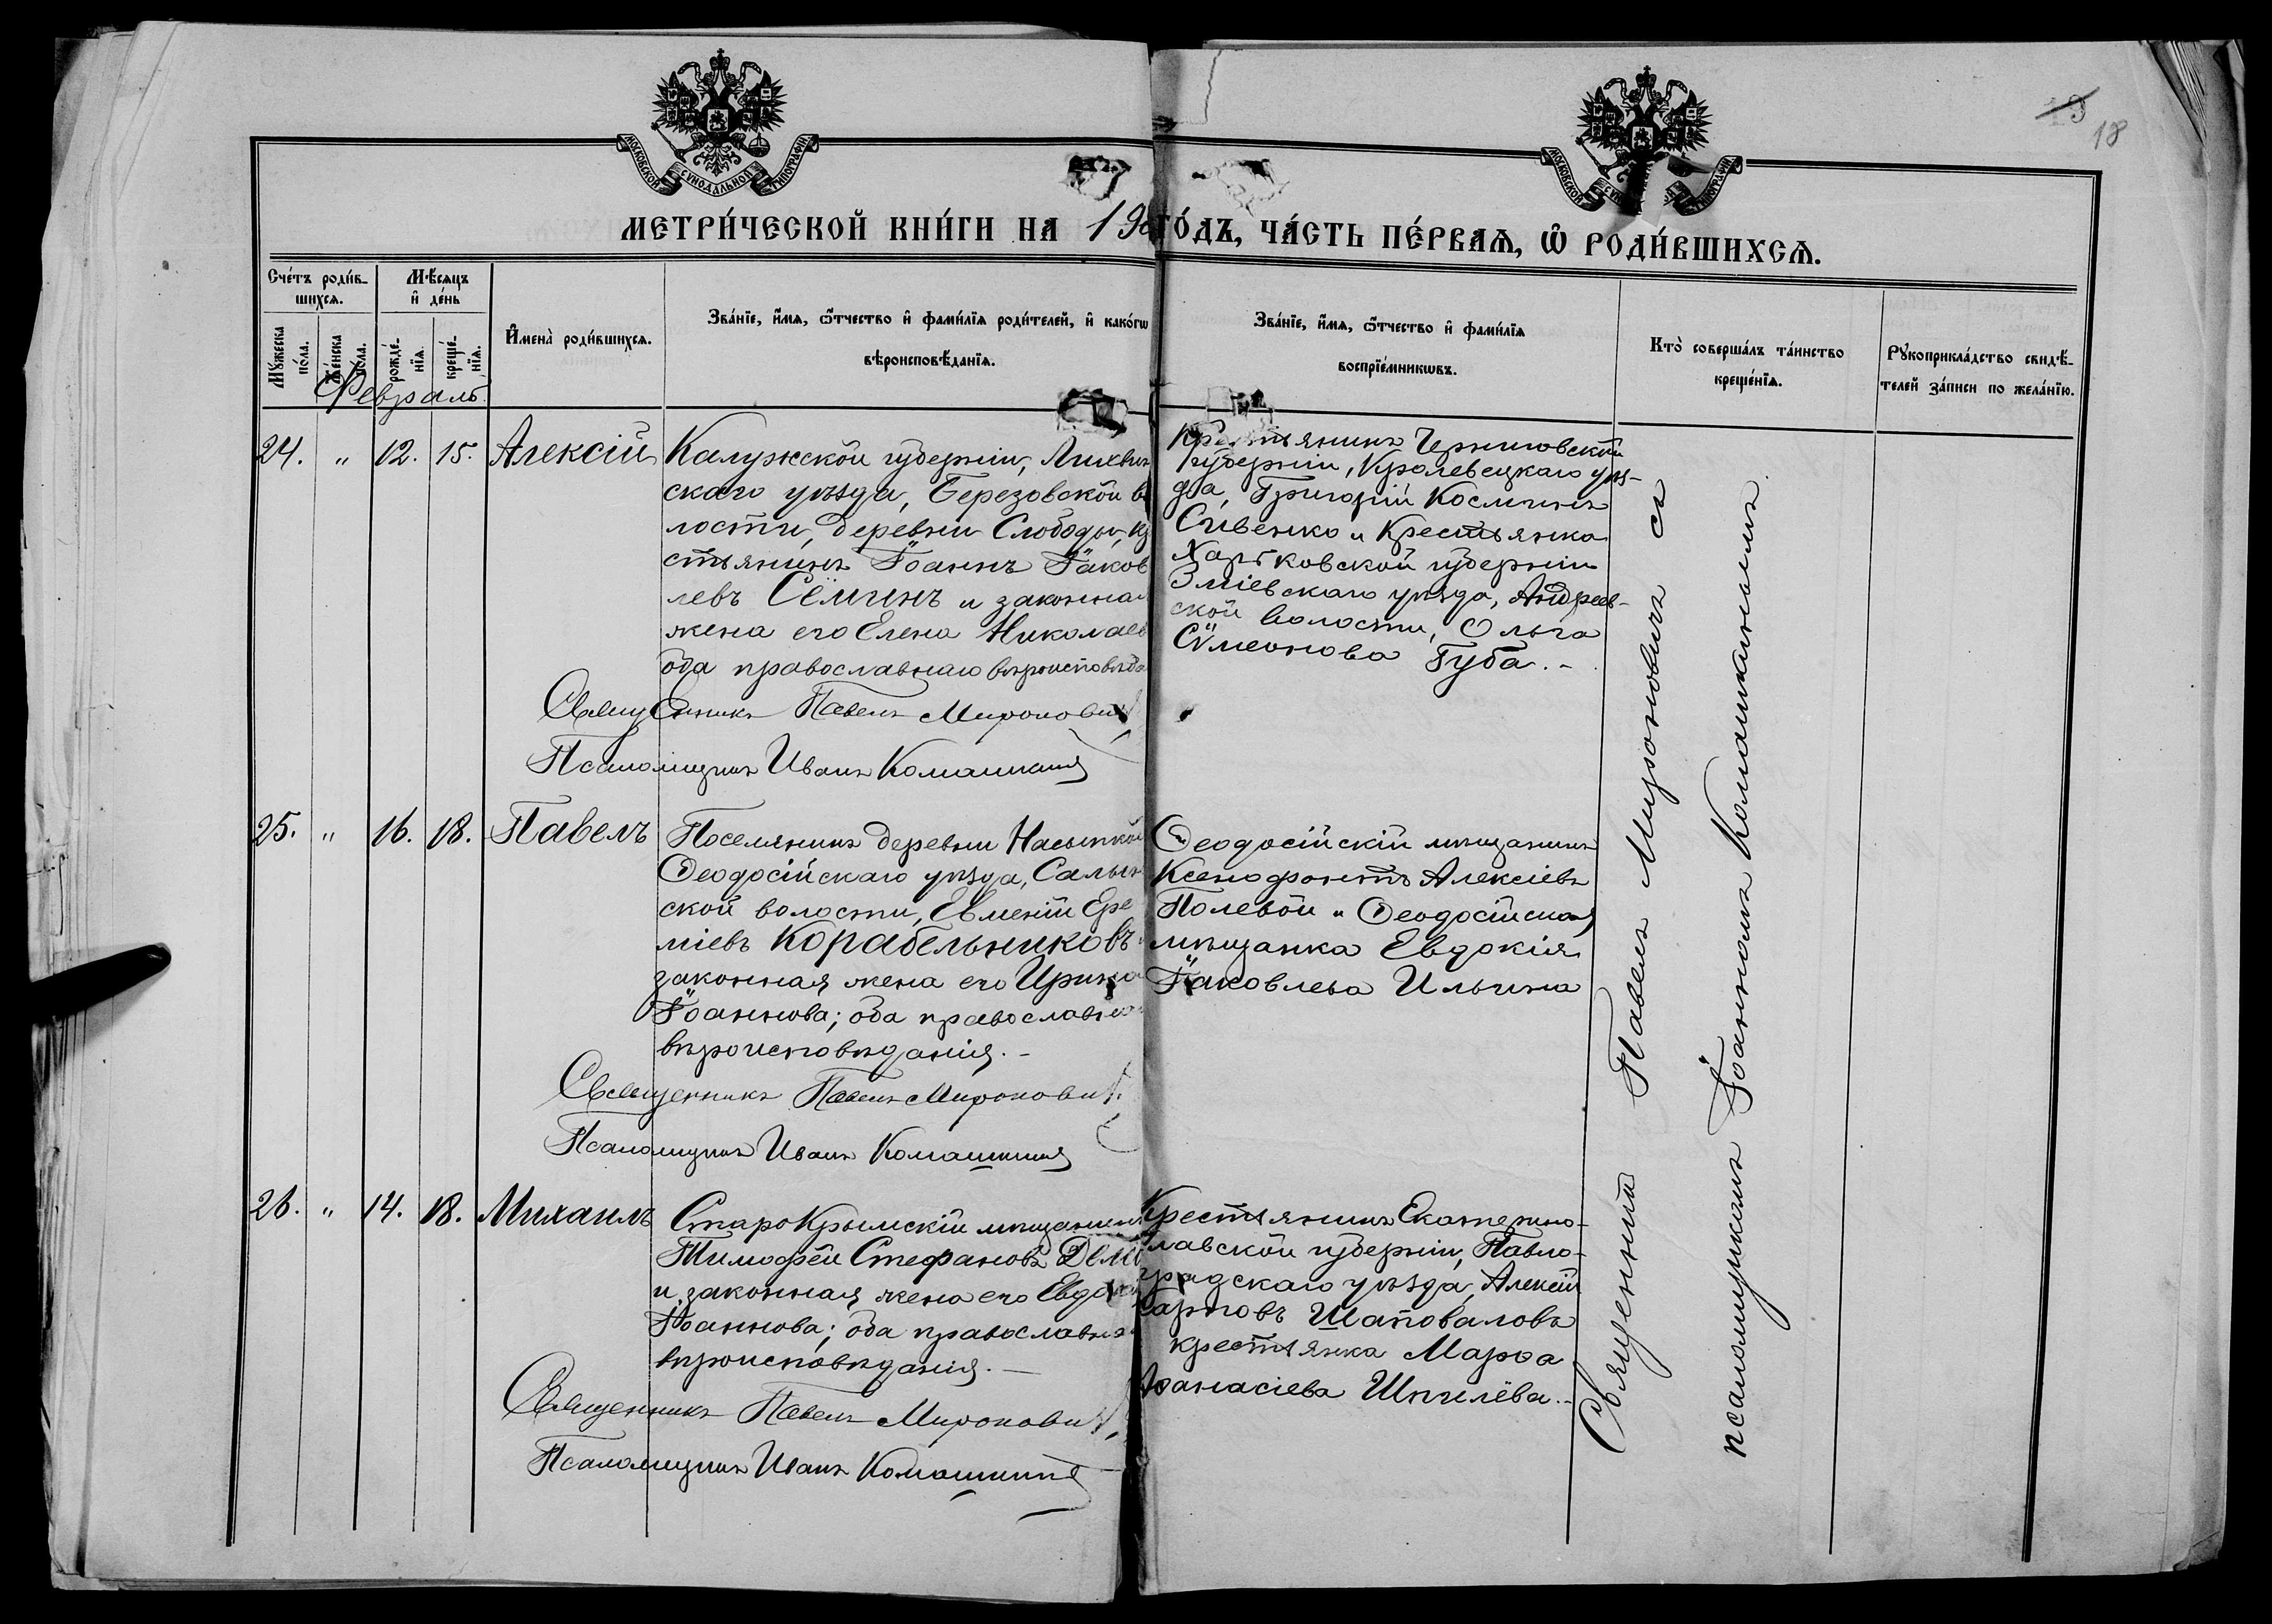 19
18
МОСКОВСКОЙ СѴНОДАЛЬНОЙ ТИПОГРАФІИ.
МОСКОВСКОЙ СѴНОДАЛЬНОЙ ТИПОГРАФІИ.
МЕТРИ́ЧЕСКОЙ КНИ́ГИ НА 19
ГО́ДЪ, ЧА́СТЬ ПЕ́РВАѦ, Ѡ҆ РОДИ́ВШИХСѦ.
Сче́тъ роди́в-
шихсѧ.
Мꙋ́жеска по́ла.
Же́нска по́ла.
Мѣ́сѧцъ
и҆ де́нь
рожде́-
нїѧ.
креще́-
нїѧ.
И҆мена̀ роди́вшихсѧ.
Зва́нїе, и҆́мѧ, ѻ҆́тчество и҆ фами́лїѧ роди́телей, и҆ како́гѡ
вѣроисповѣ́данїѧ.
Зва́нїе, и҆́мѧ, ѻ҆́тчество и҆ фами́лїѧ
воспрїе́мникѡвъ.
Кто̀ соверша́лъ та́инство
креще́нїѧ.
Рꙋкоприкла́дство свидѣ́-
телей за́писи по жела́нїю.
Февраль
24. " 12. 15. Алексій
Калужской губерніи, Лихвин
скаго уѣзда, Березовской во
лости, деревни Слободы, кр
стьянинъ Іоаннъ Іаков
левъ Сёминъ и законная
жена его Елена Николаев
оба православнаго вѣроисповѣда
Священникъ Павелъ Мироновичъ
Псаломщикъ Иванъ Комашкинъ
Крестьянинъ Черниговской
губерніи, Кролевецкаго уѣз-
да, Григорій Косминъ
Сивенко и крестьянка
Харьковской губерніи
Зміевскаго уѣзда, Андреев-
ской волости, Ольга
Сѵмеонова Губа. -
25. " 16. 18. Павелъ
Поселянинъ деревни Насыпкой
Ѳеодосійскаго уѣзда, Салын
ской волости, Евменій Ере
міевъ Корабельниковъ
законная жена его Ирина
Іоаннова; оба православна
вѣроисповѣданія. -
Священникъ Павелъ Мироновичъ
Псаломщикъ Иванъ Комашкинъ
Ѳеодосійскій мѣщанинъ
Ксенофонтъ Алексіевъ
Полевой и Ѳеодосійская
мѣщанка Евдокія
Іаковлева Ильина
26. " 14. 18. Михаилъ
СтароКрымскій мѣщанин
Тимофей Стефановъ
и законная жена его Евдо
Іоаннова; оба православна
вѣроисповѣданія. -
Священникъ Павелъ Мироновичъ
Псаломщикъ Иванъ Комашкинъ
Крестьянинъ Екатерино-
славской губерніи, Павло-
градскаго уѣзда, Алексій
Карповъ Шаповаловъ
крестьянка Марѳа
Аѳанасіева Шпилёва. -
Священникъ Павелъ Мироновичъ съ
псаломщикомъ Іоанномъ Комашкинымъ.